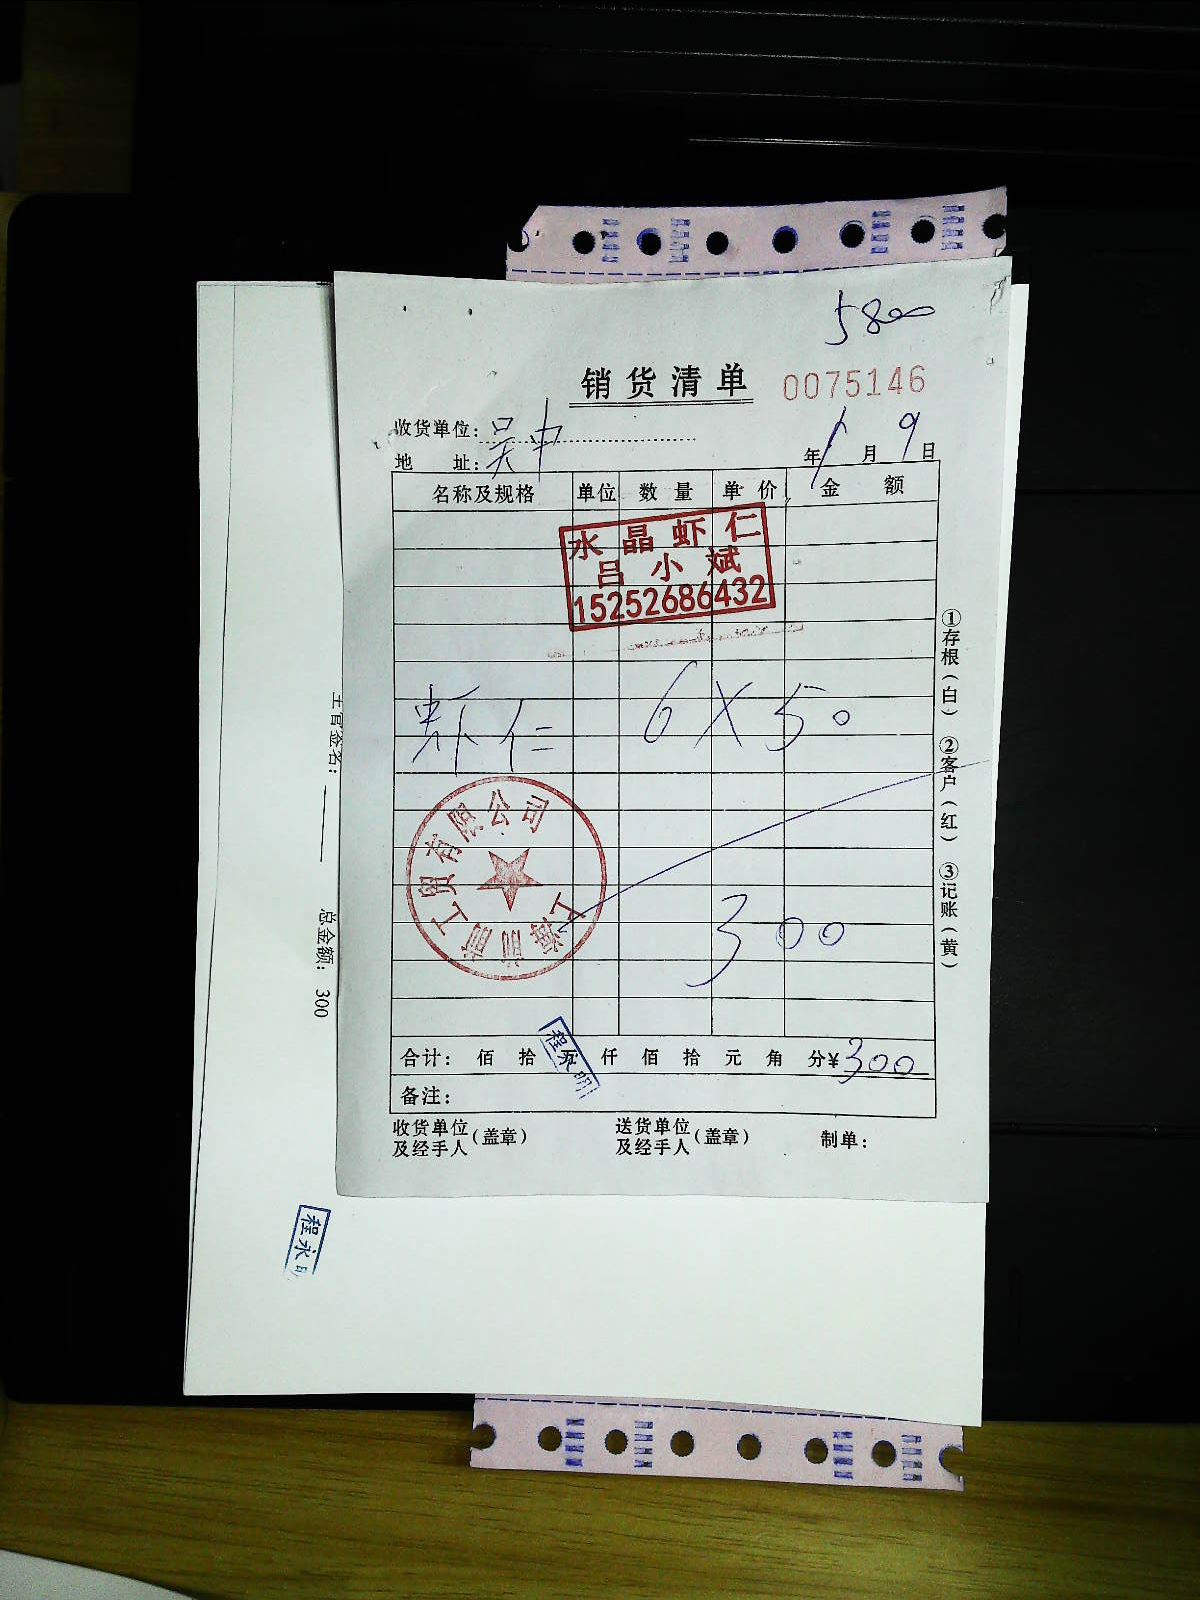 5800
销货清单 0075146
收货单位: 吴中
地 址:
年 1 月 9 日
名称及规格 单位 数量 单价 金额
水晶虾仁
吕小斌
15252686432
虾仁 6 X 50
300
上海 工贸有限公司
合计: 佰 拾 万 仟 佰 拾 元 角 分¥300
程永明
备注:
收货单位及经手人(盖章)
送货单位及经手人(盖章)
制单:
①存根(白) ②客户(红) ③记账(黄)
主管签名:
总金额: 300
程永